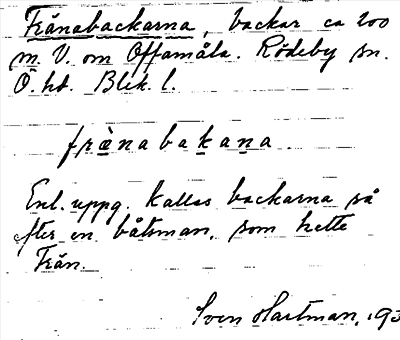 Frånabackarna, backar ca 200
m. V. om Offamåla. Rödeby sn.
Ö. hd. Blek. l.
frånabakana.
Enl. uppg. kallas backarna så
efter en båtsman, som hette
Från.
Sven Hartman, 193